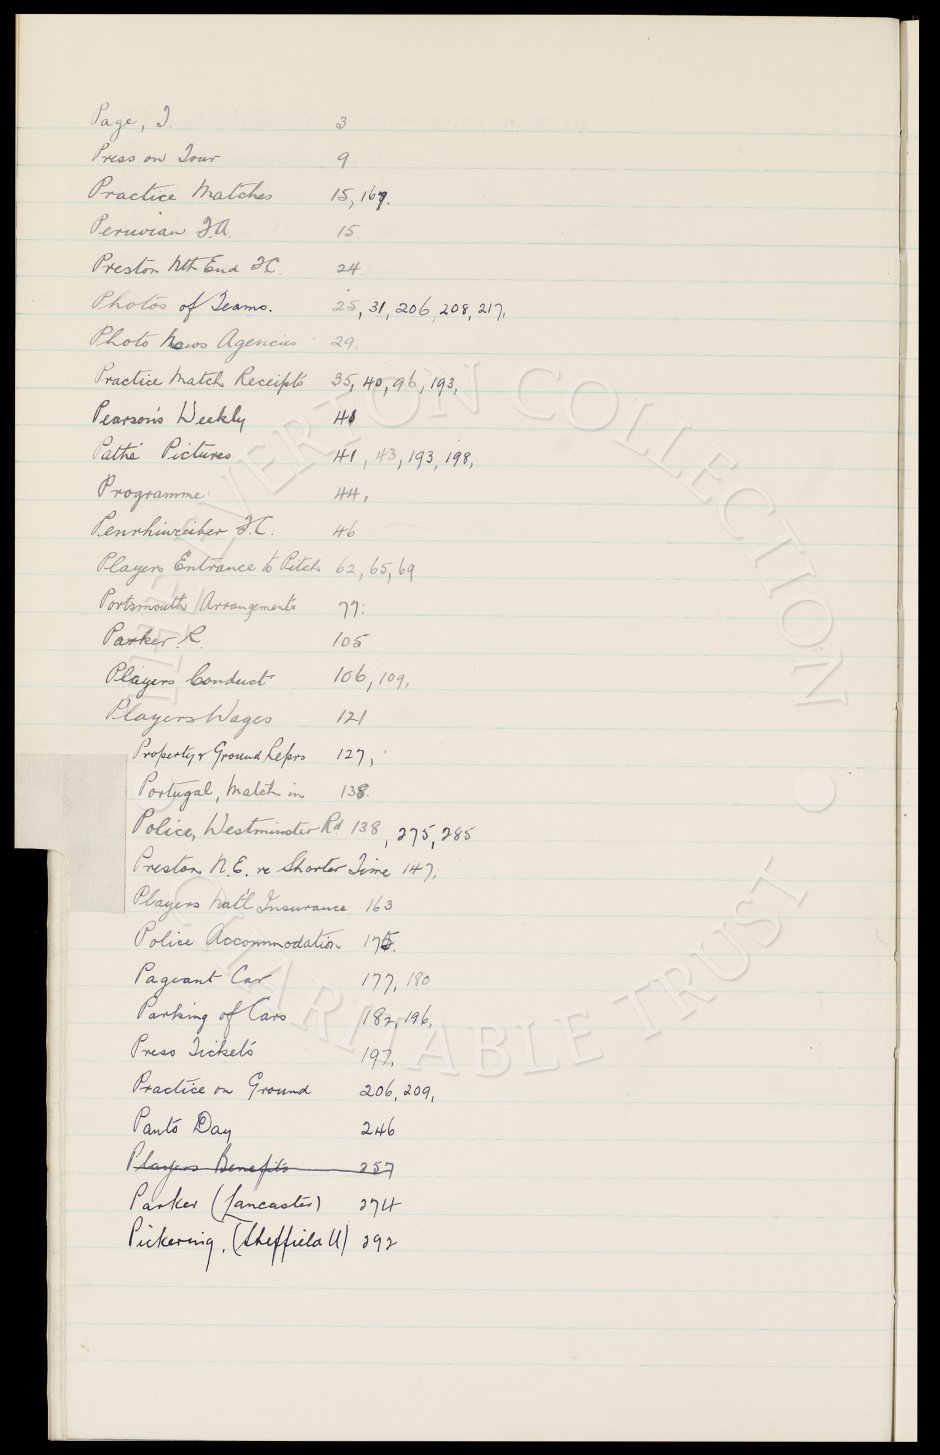 Page, T. 3
Press on Tour 9.
Practice Matches 15, 167.
Peruvian F.A. 15.
Preston Nth End F.C. 24
Photos of Teams. 25, 31, 206, 208, 217,
Photo News Agencies 29.
Practice Match Receipts 35, 40, 96, 193,
Pearson's Weekly 41
Pathé Pictures 41, 43, 193, 198,
Programme 44,
Penrhiwceiber F.C. 46
Players Entrance to Pitch 62, 65, 69
Portsmouth Arrangements 77.
Parker. R. 105
Players Conduct 106, 109,
Players Wages 121
Property & Ground Reprs 127,
Portugal, Match in 138.
Police, Westminster Rd 138, 275, 285
Preston N.E. re Shorter Time 147,
Players Nat'l Insurance 163
Police Accommodation 175.
Pageant Car 177, 180
Parking of Cars 182, 196,
Press Tickets 197,
Practice on Ground 206, 209,
Panto Day 246
Players Benefits 257
Parker (Lancaster) 274
Pickering, (Sheffield U) 292
THE EVERTON COLLECTION
CHARITABLE TRUST